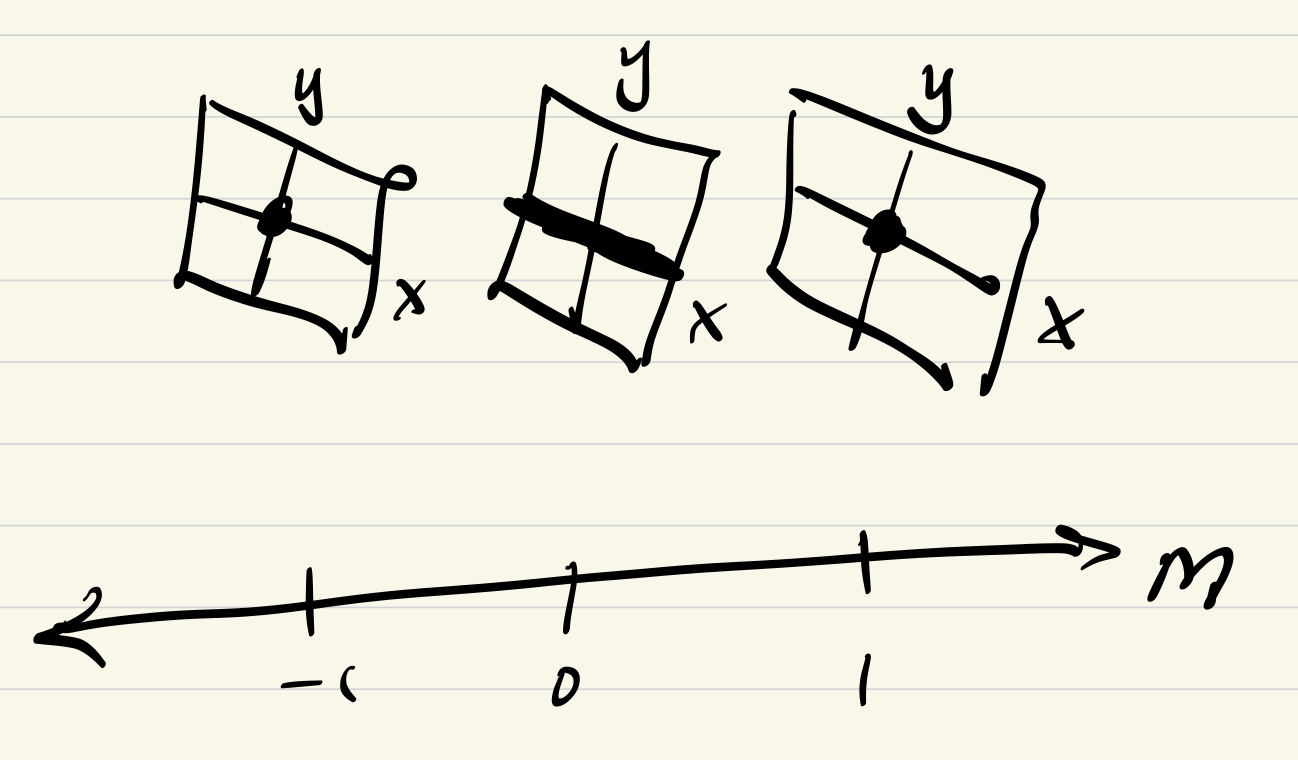 y y y
x x x
m
-1 0 1